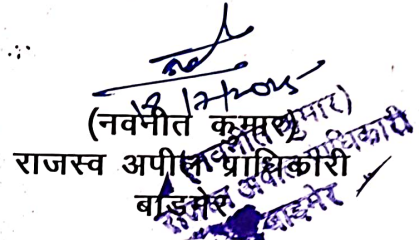 18/7/2025
(नवनीत कुमार)
राजस्व अपील प्राधिकारी
बाड़मेर
(नवनीत कुमार)
राजस्व अपील प्राधिकारी
बाड़मेर